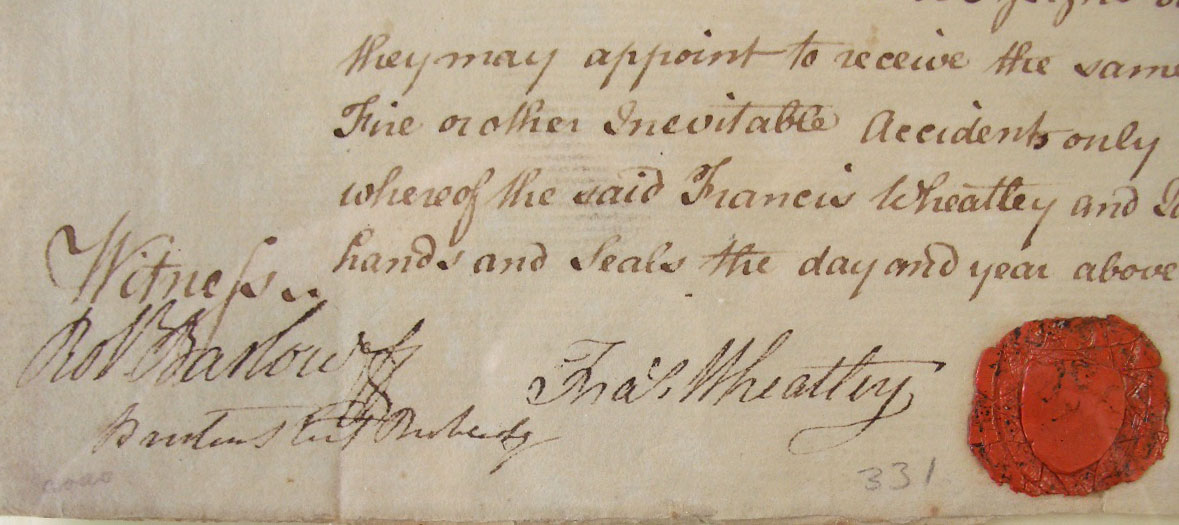 they may appoint to receive the same
Fire or other Inevitable Accidents only
whereof the said Francis Wheatley and
hands and Seals the day and year above
Witness..
Robt Barlow
Fras. Wheatley
331